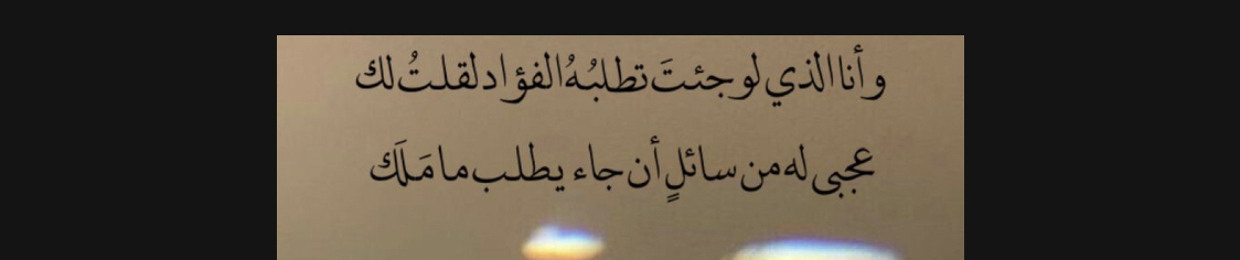 وأنا الذي لو جئتَ تطلبُهُ الفؤاد لقلتُ لك
عجبي له من سائلٍ أن جاء يطلب ما مَلَك